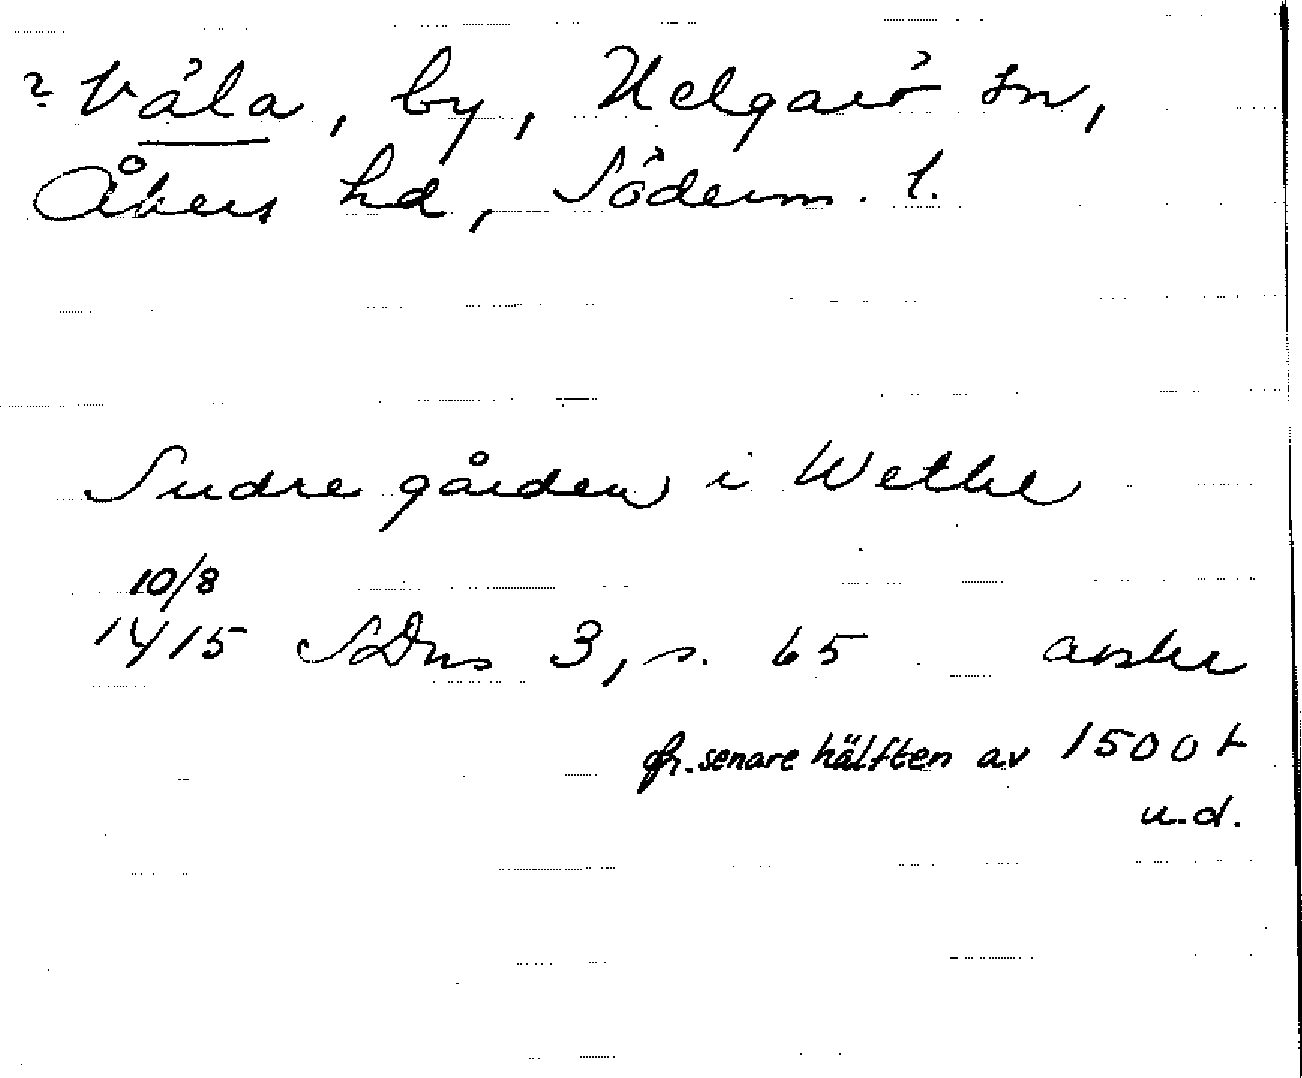 ? Våla, by, Helgarö sn,
Åkers hd, Söderm. l.
Sudre gården i Wethle
10/8
1415 SDns 3, s. 65 avskr
fr. senare hälften av 1500 t
u.d.